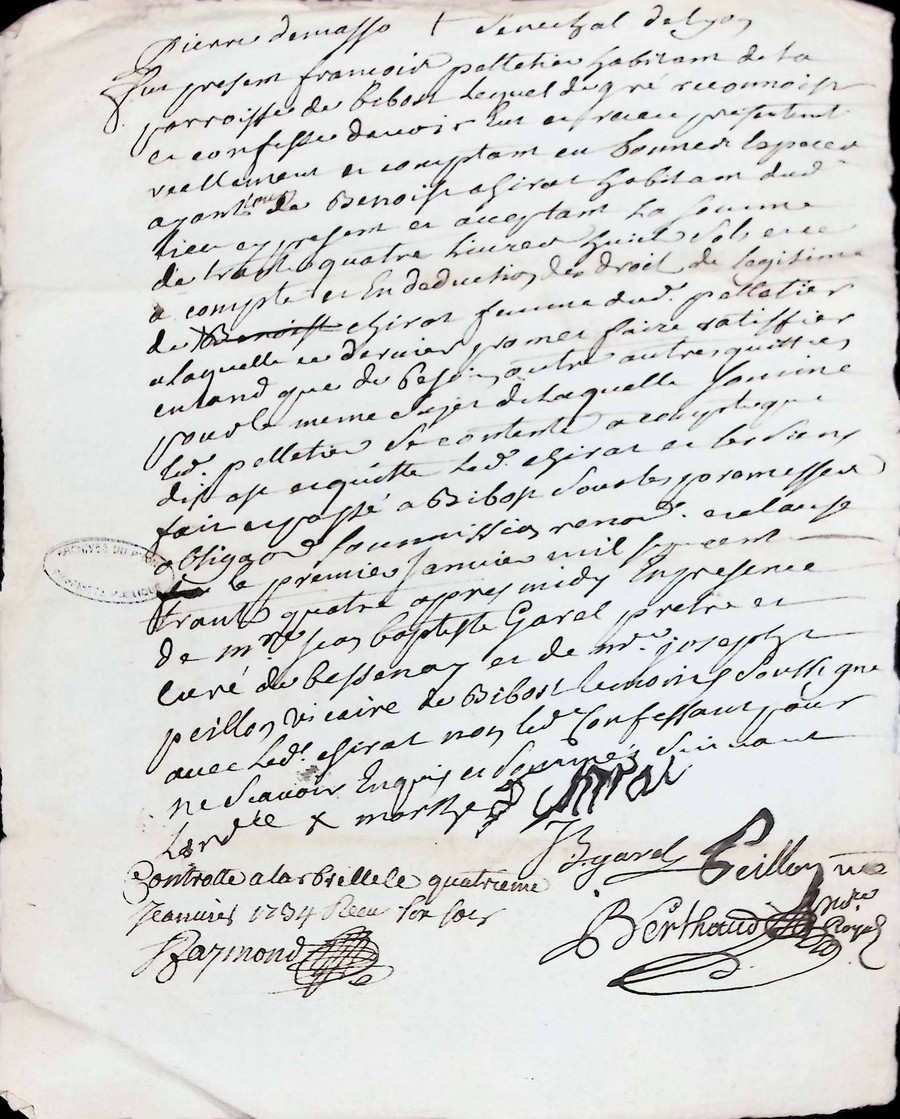 Pierre demasso + Senechal de lyon
Fut present francois pelletier habitant de la
parroisse de Bibost lequel de gré reconnoist
et confesse davoir Eut et receu presentemt
reellement et comptant en bonnes Especes
ayant cours de Benoist chirat habitant dud.
lieu cy present et acceptant la somme
de trante quatre livres huit sols et ce
a compte et En deduction des droit de legitime
de Benoist chirat femme dud. pelletier
a laquelle ce dernier promet faire ratiffier
entand que de besoin outre autres quittes
pour le meme sujet de laquelle somme
led. pelletier se contente a compte que
dit est et quitte led. chirat et les siens
fait et passé a Bibost sous les promesses
obligaons soumissions renons. et clause
le premier Janvier mil sept cent
trante quatre apres midy En presence
de mre Jean baptiste Garel pretre et
curé de bessenay et de mre. joseph
peillon vicaire de Bibost temoins soussigne
avec led. chirat non led. Confessant pour
ne scavoir Enquis et sommés suivant
Lordce x marthe chirat
JBgarel Peillon vic
Controlle a larbrelle le quatrieme
Jeanvier 1734 Receu six sols
Berthaud nore Royal
Raymond